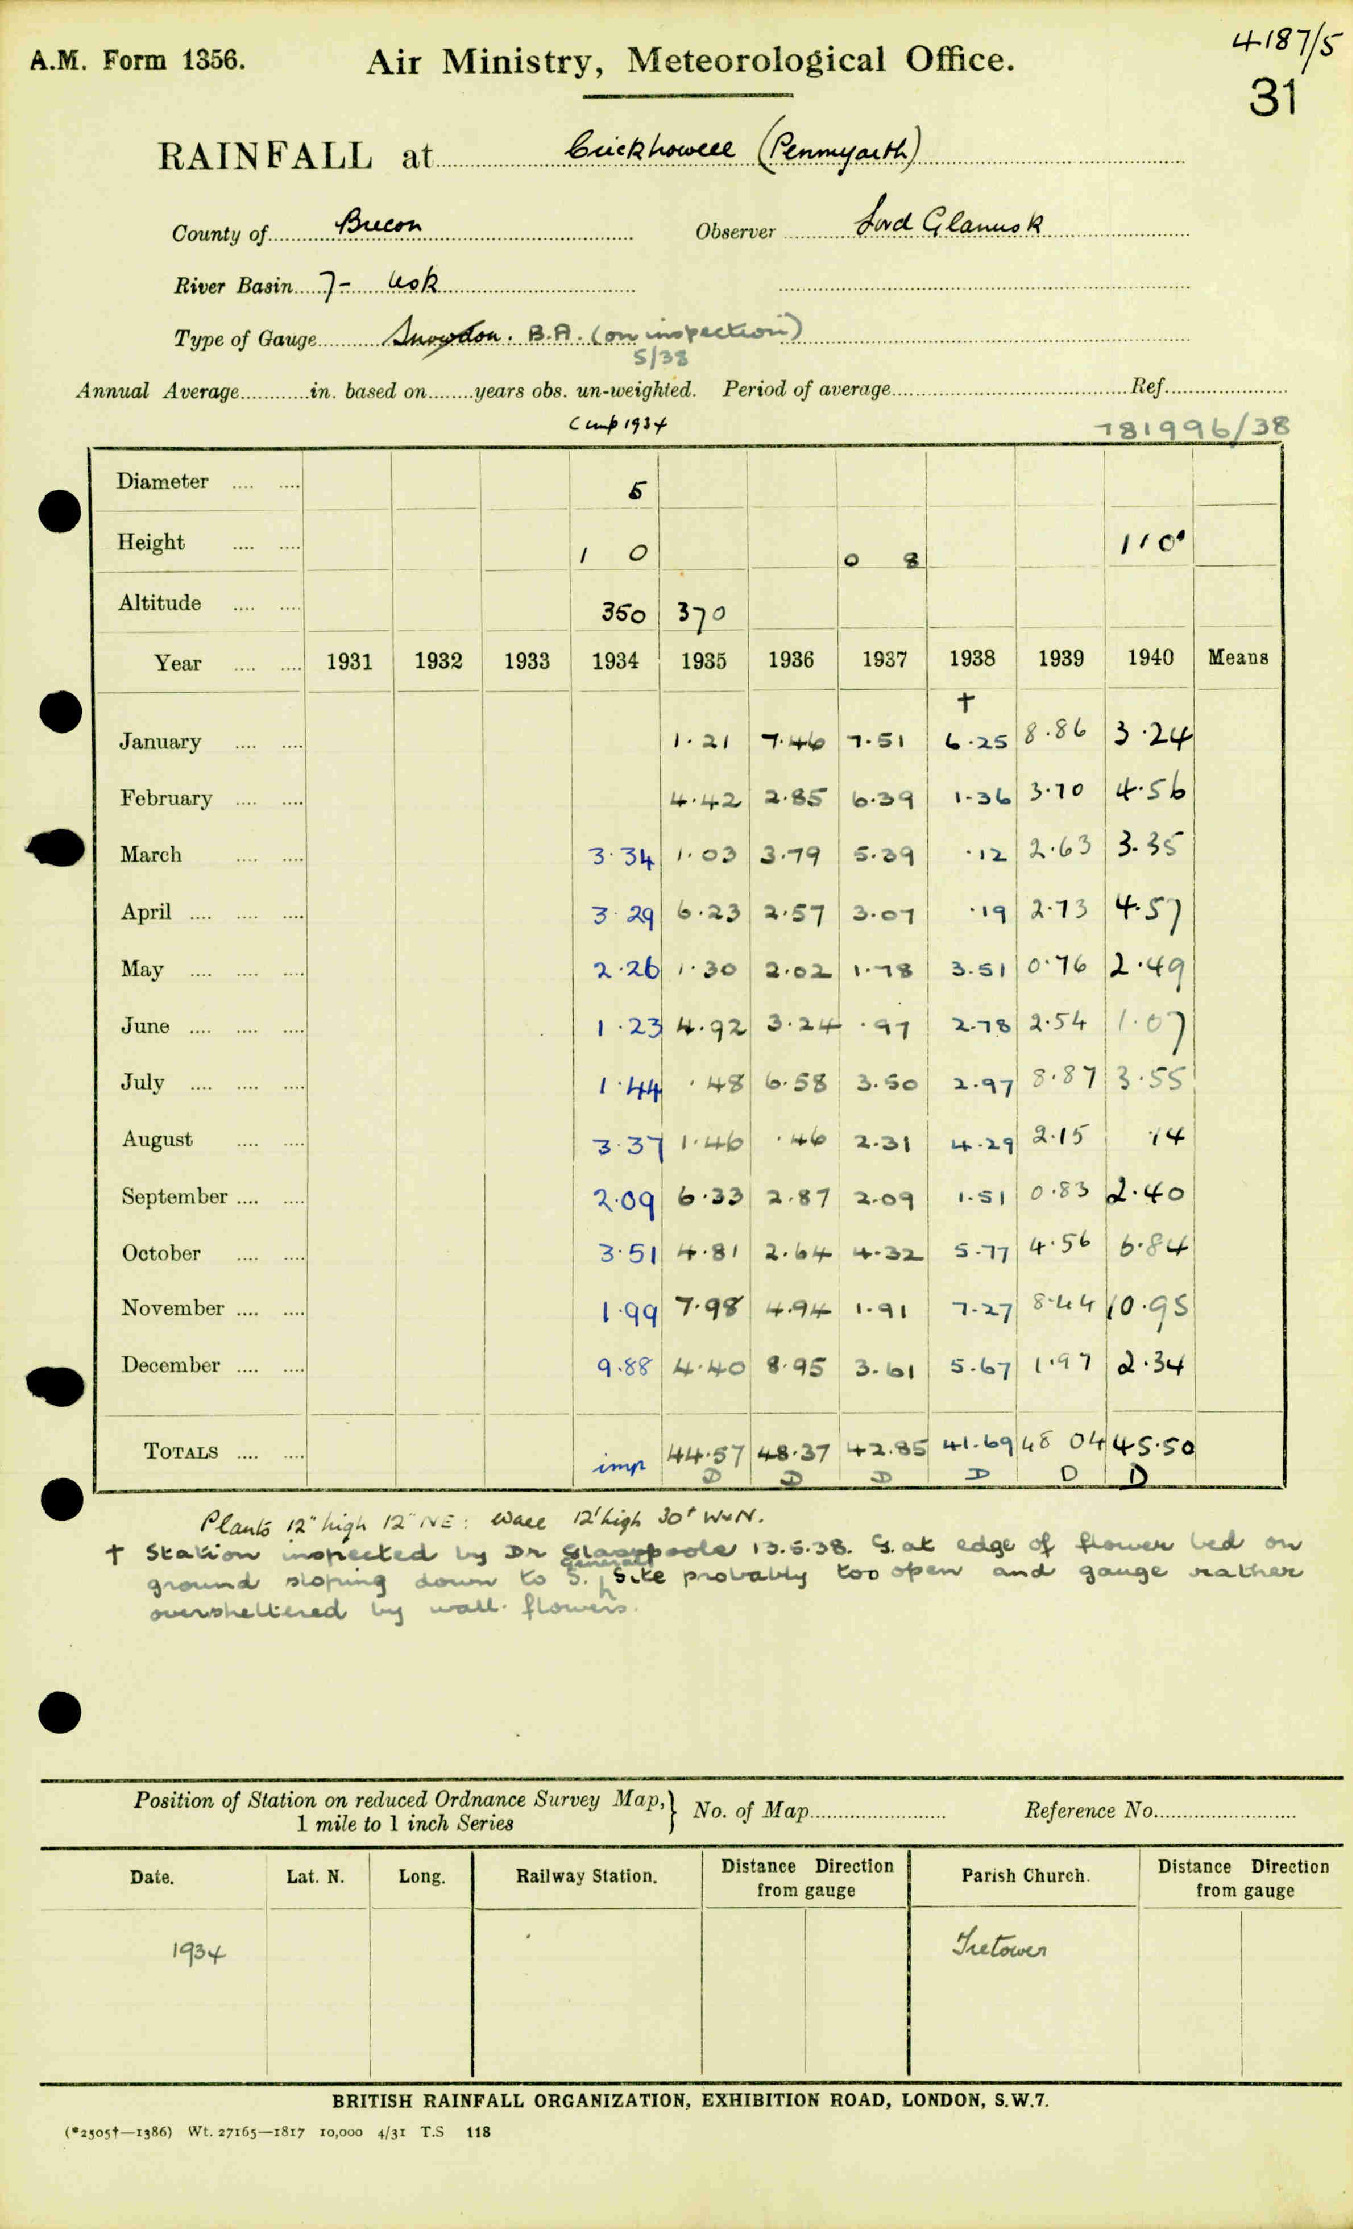 4187/5
A.M. Form 1356. Air Ministry, Meteorological Office.
31
RAINFALL at Crickhowell (Penmyarth)
County of Brecon Observer Lord Glanusk
River Basin 7- Usk
Type of Gauge Snowdon. B.A. (on inspection)
5/38
Annual Average in. based on years obs. un-weighted. Period of average Ref.
Cmp 1934 781996/38
Diameter .... .... 5
Height .... .... 1 0 0 8 1 10"
Altitude .... .... 350 370
Year .... .... 1931 1932 1933 1934 1935 1936 1937 1938 1939 1940 Means
†
January .... .... 1.21 7.46 7.51 6.25 8.86 3.24
February .... .... 4.42 2.85 6.39 1.36 3.70 4.56
March .... .... 3.34 1.03 3.79 5.39 .12 2.63 3.35
April .... .... .... 3.29 6.23 2.57 3.07 .19 2.73 4.57
May .... .... .... 2.26 1.30 2.02 1.78 3.51 0.76 2.49
June .... .... .... 1.23 4.92 3.24 .97 2.78 2.54 1.07
July .... .... .... 1.44 .48 6.58 3.50 2.97 8.87 3.55
August .... .... 3.37 1.46 .46 2.31 4.29 2.15 .14
September .... .... 2.09 6.33 2.87 2.09 1.51 0.83 2.40
October .... .... 3.51 4.81 2.64 4.32 5.77 4.56 6.84
November .... .... 1.99 7.98 4.94 1.91 7.27 8.44 10.95
December .... .... 9.88 4.40 8.95 3.61 5.67 1.97 2.34
TOTALS .... .... imp 44.57 48.37 42.85 41.69 48 04 45.50
D D D D D D
Plants 12" high 12" NE: Wall 12' high 30' WNN.
† Station inspected by Dr Glasspoole 13.5.38. G. at edge of flower bed on
generally
ground sloping down to S. Site probably too open and gauge rather
oversheltered by wall flowers.
Position of Station on reduced Ordnance Survey Map, } No. of Map Reference No.
1 mile to 1 inch Series
Date. Lat. N. Long. Railway Station. Distance Direction from gauge Parish Church. Distance Direction from gauge
1934 Tretower
BRITISH RAINFALL ORGANIZATION, EXHIBITION ROAD, LONDON, S.W.7.
(*2505†—1386) Wt. 27165—1817 10,000 4/31 T.S 118